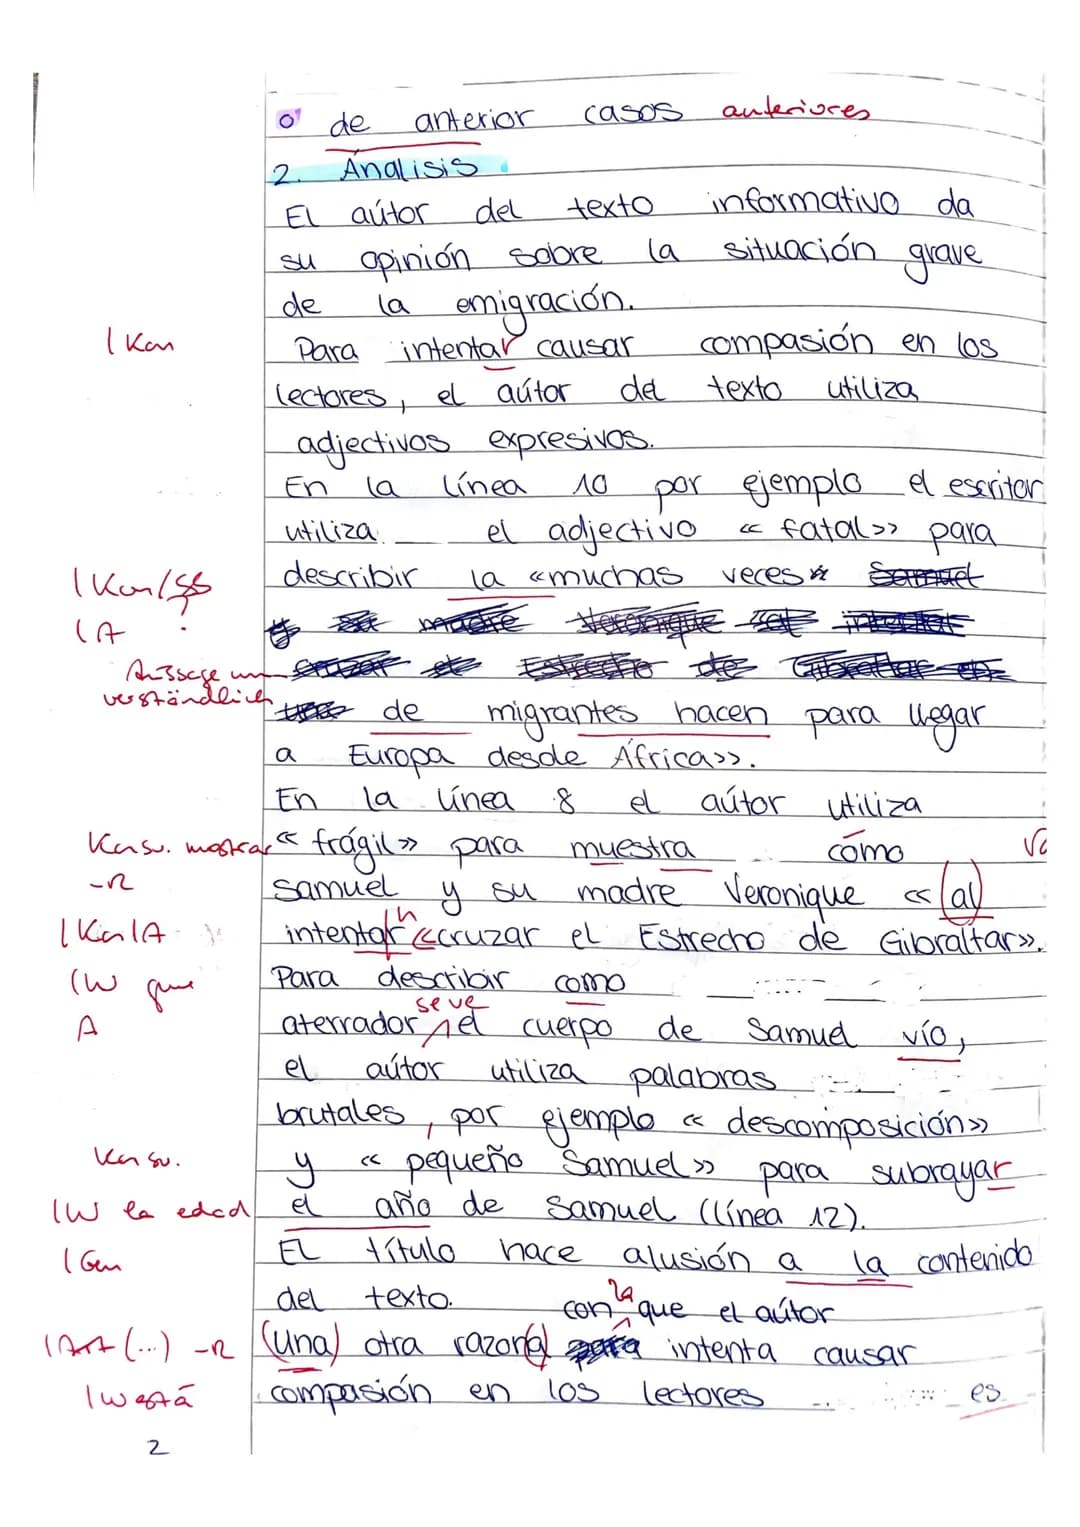 de anterior casos anteriores
2. Análisis
El aútor del texto informativo da
su opinión sobre la situación grave
de la emigración.
1 Kon Para intentar causar compasión en los
lectores, el aútor del texto utiliza
adjectivos expresivos.
En la línea 10 por ejemplo el escritor
utiliza el adjectivo «fatal» para
1 Kon/SB describir la «muchas veces Samuel
1A ? madre Veronique intentar
Aussage un- cruzar el Estrecho de Gibraltar en
verständlich de migrantes hacen para llegar
a Europa desde África».
En la línea 8 el aútor utiliza
Konsv. mostrar «frágil» para muestra cómo
-R Samuel y su madre Veronique «(al)
1 Kon 1A intentar n «cruzar el Estrecho de Gibraltar».
1W que Para describir como
A aterrador se ve el cuerpo de Samuel vío,
el aútor utiliza palabras
brutales, por ejemplo «descomposición»
Konsv. y «pequeño Samuel» para subrayar
1W la edad el año de Samuel (línea 12).
1 Gen El título hace alusión a la contenido
del texto. con la que el aútor
1Art (...) -R (Una) otra razon(a) para intenta causar
1W está compasión en los lectores es
2